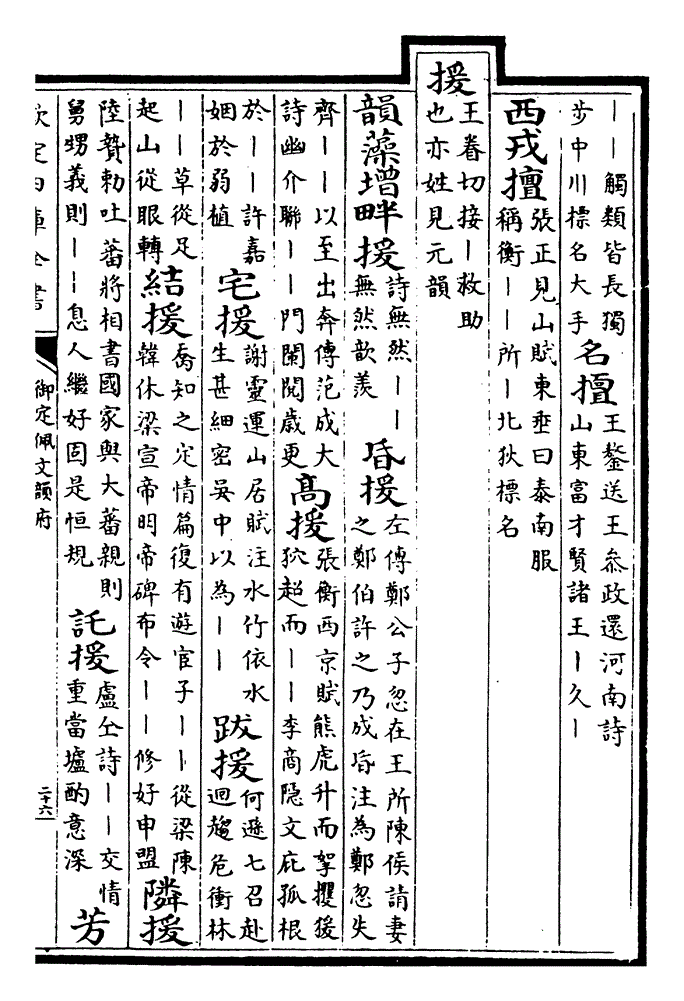 丨丨觸類皆長獨
步中川標名大手
名擅
王鏊送王叅政還河南詩
山東富才賢諸王丨久丨
西戎擅
張正見山賦東垂曰泰南服
稱衡丨丨所丨北狄標名
援
王眷切接丨救助
也亦姓見元韻
韻藻增畔援
詩無然丨丨
無然歆羨
昏援
左傳鄭公子忽在王所陳侯請妻
之鄭伯許之乃成昏注為鄭忽失
齊丨丨以至出奔傳范成大
詩幽介聯丨丨門闌閱歲更
高援
張衡西京賦熊虎升而挐攫猨
狖超而丨丨李商隐文庇孤根
於丨丨許嘉
姻於弱植
宅援
謝靈運山居賦注水竹依水
生甚細密吳中以為丨丨
跋援
何遜七召赴
迴趨危衝林
丨丨草從足
起山從眼轉
結援
喬知之定情篇復有遊宦子丨丨從梁陳
韓休梁宣帝明帝碑布令丨丨修好申盟
隣援
陸贄勅吐蕃將相書國家與大蕃親則
舅甥義則丨丨息人繼好固是恒規
託援
盧仝詩丨丨交情
重當壚酌意深
芳
欽定四庫全書
御定佩文韻府
二十六